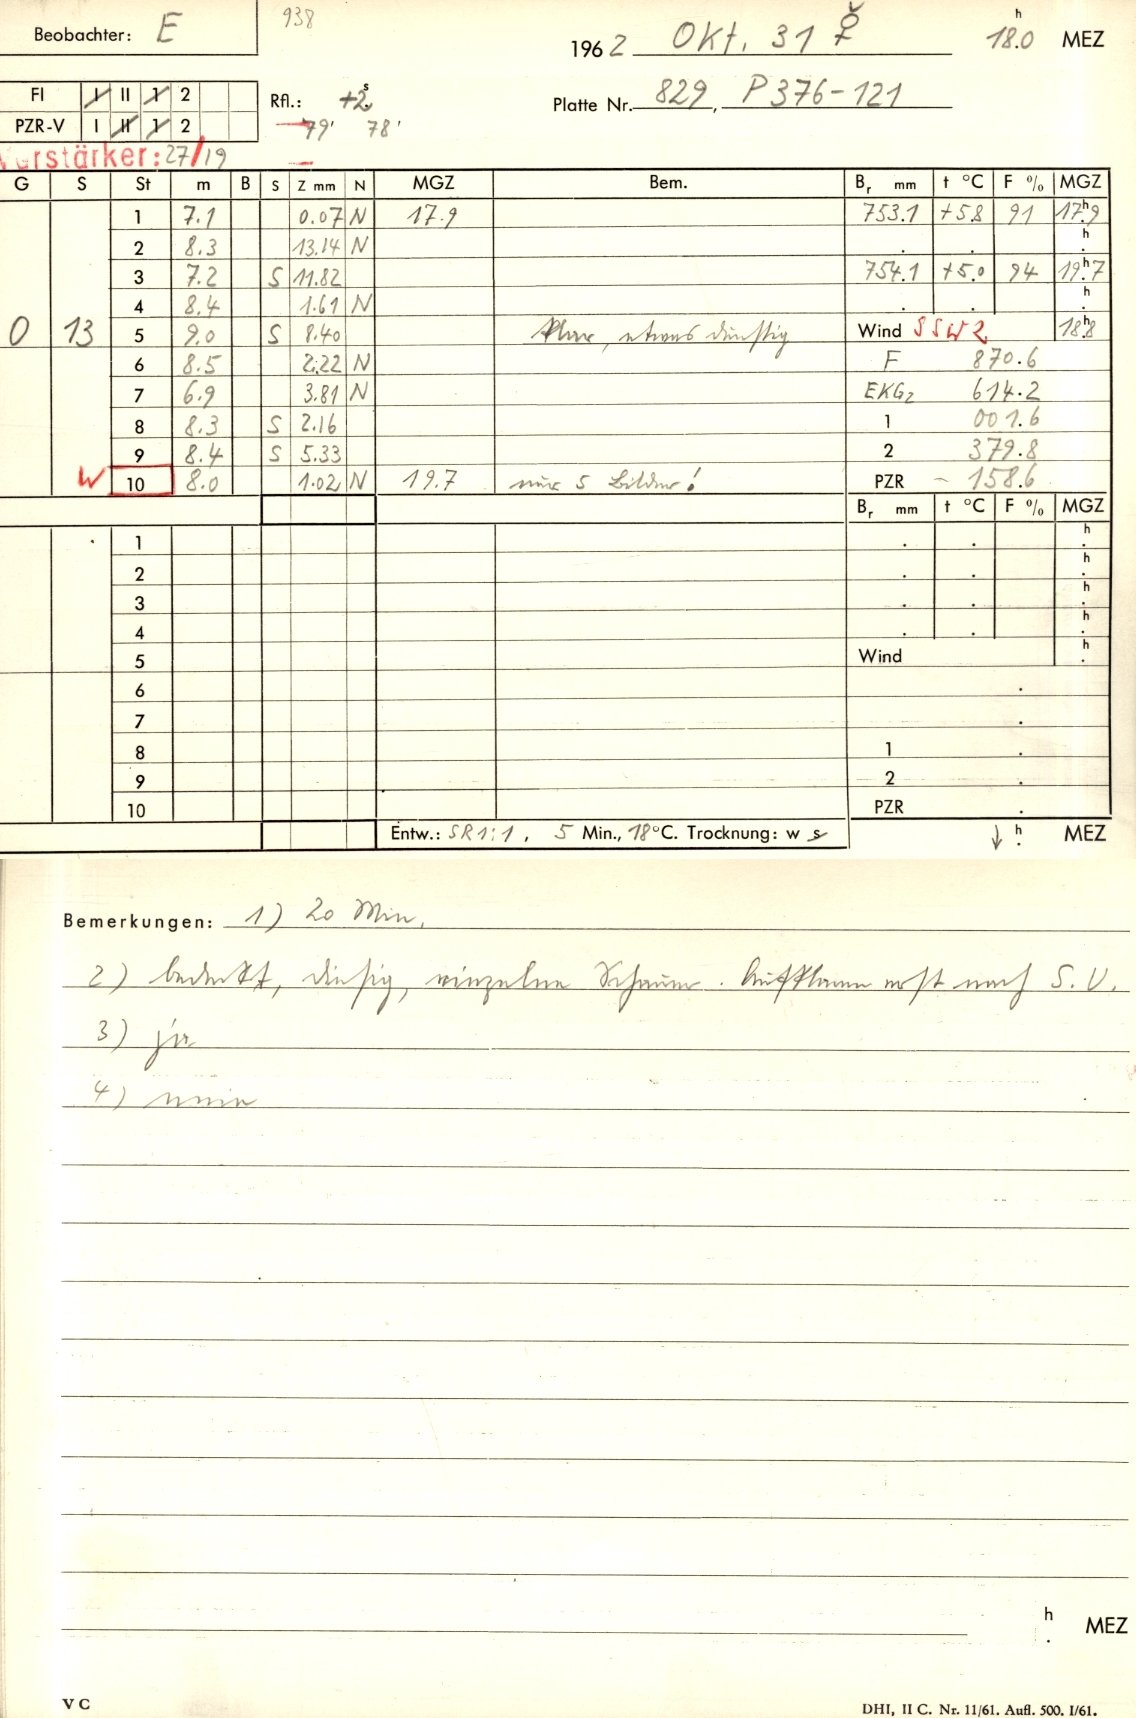 Beobachter: E 938 1962 Okt. 31 h 18.0 MEZ
FI I II 1 2 Rfl.: +2s Platte Nr. 829, P 376-121
PZR-V I II 1 2 79' 78'
Verstärker: 27/19
G S St m B S Z mm N MGZ Bem. Br mm t °C F % MGZ
1 7.1 0.07 N 17.9 753.1 +5.8 91 17h.9
2 8.3 13.14 N . . h.
3 7.2 S 11.82 754.1 +5.0 94 19h.7
4 8.4 1.61 N . . h.
0 13 5 9.0 S 8.40 klar, etwas dunstig Wind SSW 2 18h.8
6 8.5 2.22 N F 870.6
7 6.9 3.81 N EKG2 614.2
8 8.3 S 2.16 1 001.6
9 8.4 S 5.33 2 379.8
W 10 8.0 1.02 N 19.7 nur 5 Bilder! PZR - 158.6
Br mm t °C F % MGZ
1 . . h.
2 . . h.
3 . . h.
4 . . h.
5 Wind h.
6 .
7 .
8 1 .
9 2 .
10 PZR .
Entw.: SR 1:1, 5 Min., 18°C. Trocknung: w s ↓ h. MEZ
Bemerkungen: 1) 20 Min.
2) bedeckt, diesig, einzelne Schauer. Aufklaren erst nach S.U.
3) ja
4) nein
h. MEZ
V C DHI, II C. Nr. 11/61. Aufl. 500. I/61.